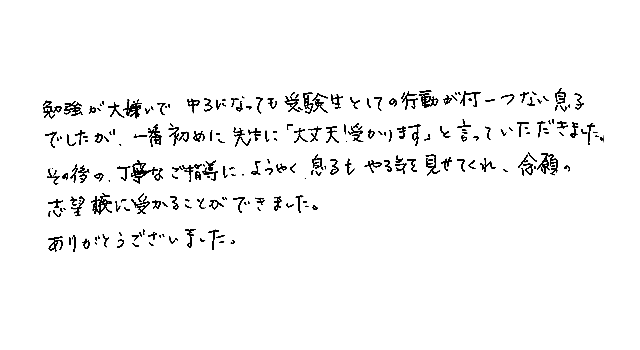 勉強が大嫌いで 中3になっても受験生としての行動が何一つない息子
でしたが、一番初めに先生に「大丈夫!受かります」と言っていただきました。
その後の、丁寧なご指導に、ようやく息子も やる気を見せてくれ、念願の
志望校に受かることができました。
ありがとうございました。